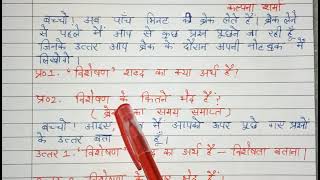 कल्पना शर्मा
बच्चों! अब पाँच मिनट का ब्रेक लेते हैं। ब्रेक लेने
से पहले मैं आप से कुछ प्रश्न पूछने जा रही हूँ
जिनके उत्तर आप ब्रेक के दौरान अपनी नोटबुक में
लिखेंगे।
प्र०1. "विशेषण" शब्द का क्या अर्थ है?
प्र०2. विशेषण के कितने भेद हैं?
( का समय समाप्त)
बच्चों! आइए, मैं आपको ऊपर पूछे गए प्रश्नों
के उत्तर बता हूँ।
उत्तर 1. "विशेषण" का अर्थ है – विशेषता बताना।